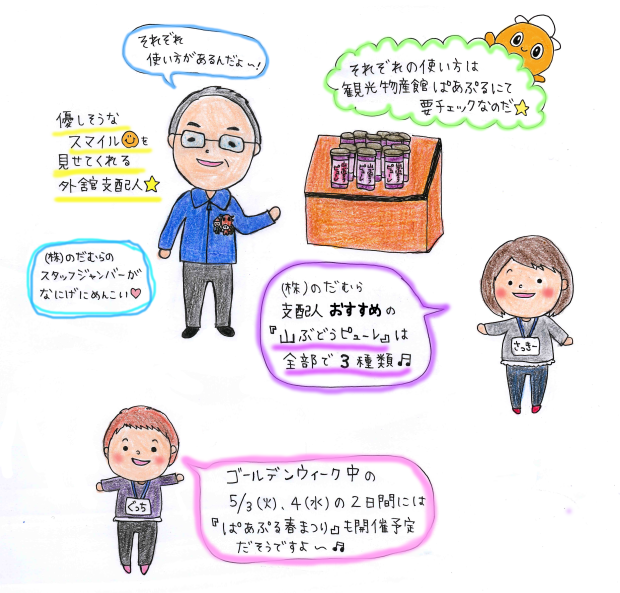 それぞれ
使い方があるんだよ〜!
それぞれの使い方は
観光物産館ぱあぷるにて
要チェックなのだ☆
優しそうな
スマイル😊を
見せてくれる
外舘支配人☆
(株)のだむらの
スタッフジャンパーが
なにげにめんこい♡
(株)のだむら
支配人おすすめの
『山ぶどうピューレ』は
全部で3種類♬
さっきー
ぐっち
ゴールデンウィーク中の
5/3(火)、4(水)の2日間には
『ぱあぷる春まつり』も開催予定
だそうですよ〜♬